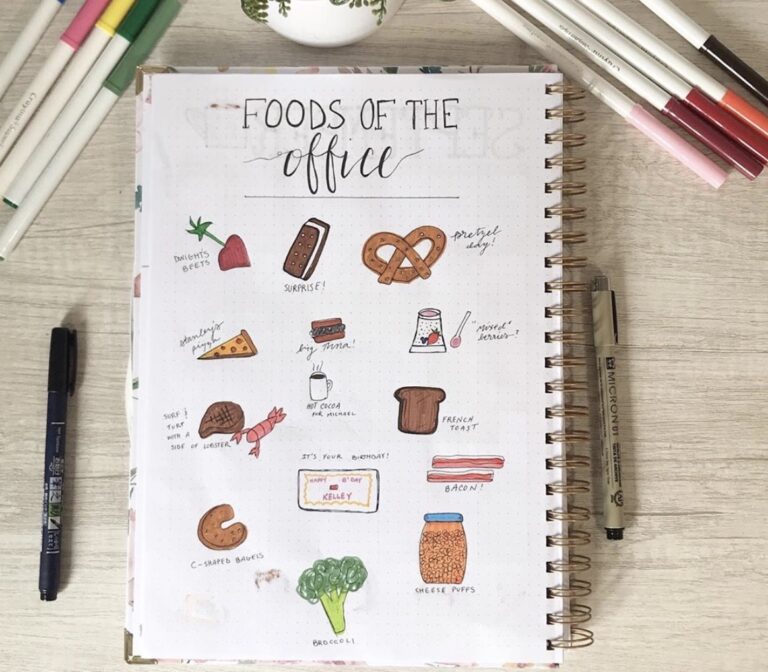 FOODS OF THE
office
DWIGHTS
BEETS
SURPRISE!
pretzel
day!
stanley's
pizza
big tuna!
"mixed"
berries-?
HOT COCOA
FOR MICHAEL
SURF &
TURF
WITH A
SIDE OF LOBSTER
FRENCH
TOAST
IT'S YOUR BIRTHDAY!
HAPPY B'DAY
KELLEY
BACON!
C-SHAPED BAGELS
CHEESE PUFFS
BROCCOLI
MICRON 01
Crayola